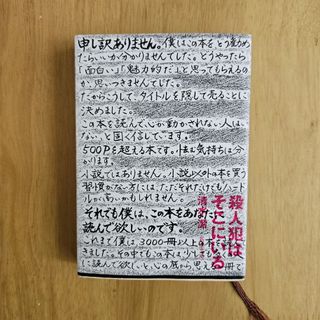 申し訳ありません。僕はこの本をどう勧め
たらいいか分かりませんでした。どうやったら
「面白い」「魅力的だ」と思ってもらえるの
か、思いつきませんでした。
だからこうして、タイトルを隠して売ることに
決めました。
この本を読んで心が動かされない人は
いない、と固く信じています。
500Pを超える本です。怯む気持ちは分
かります。
小説ではありません。小説以外の本を買う
習慣がない方には、ただそれだけでもハード
ルが高いかもしれません。
それでも僕は、この本をあなたに
読んで欲しいのです。
これまで僕は3000冊以上
きました。その中でもこの本は
に読んで欲しいと、心の底から思える一冊で
殺人犯は
そこにいる
清水潔